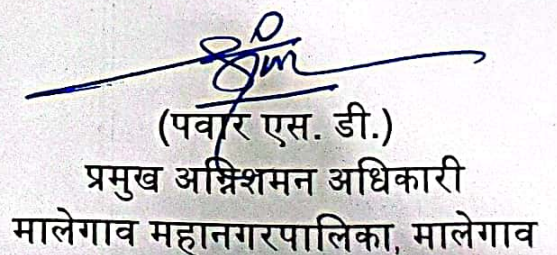 (पवार एस. डी.)
प्रमुख अग्निशमन अधिकारी
मालेगाव महानगरपालिका, मालेगाव